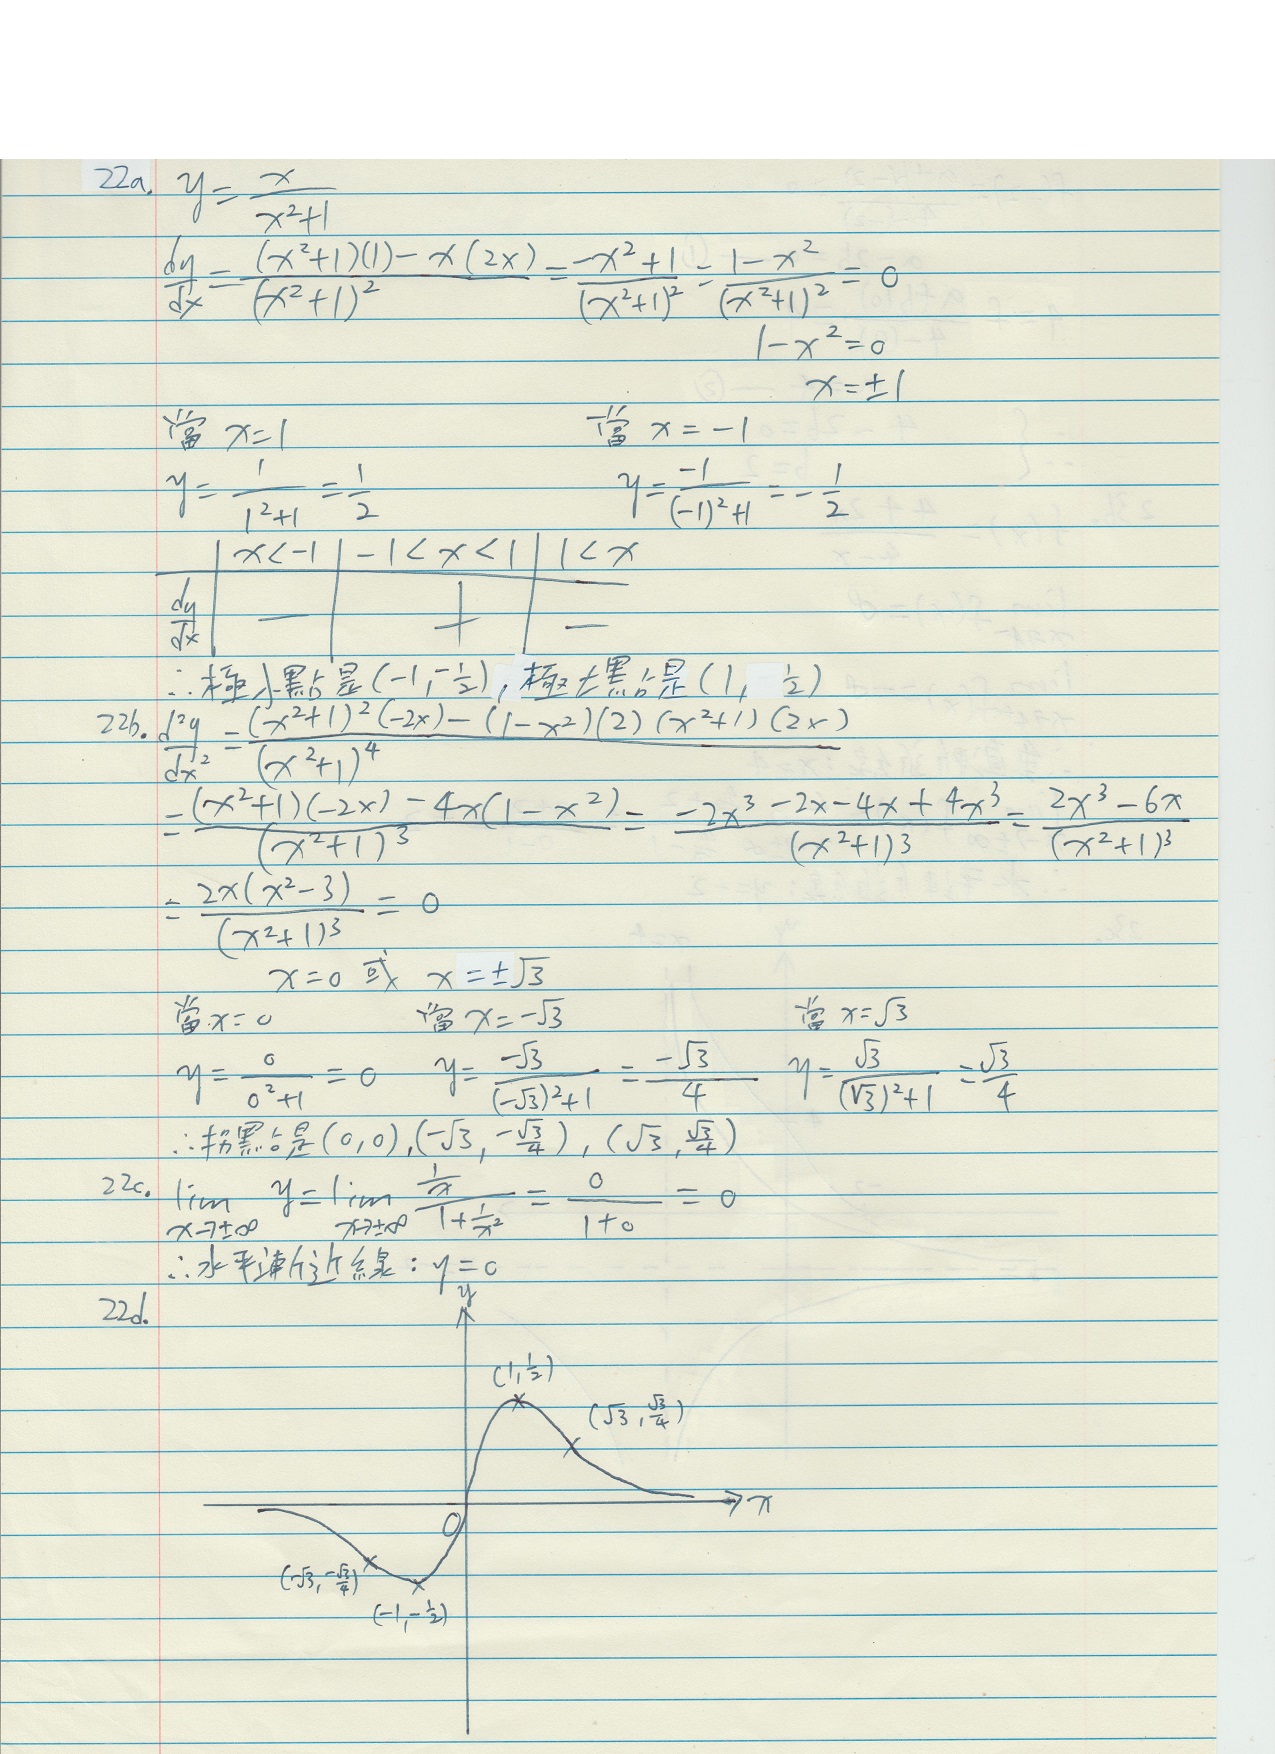 22a. y = x/(x²+1)
dy/dx = ((x²+1)(1) - x(2x))/(x²+1)² = (-x²+1)/(x²+1)² = (1-x²)/(x²+1)² = 0
1-x² = 0
x = ±1
當 x=1 當 x = -1
y = 1/(1²+1) = 1/2 y = -1/((-1)²+1) = -1/2
| x < -1 | -1 < x < 1 | 1 < x
dy/dx | − | + | −
∴極小點是(-1, -1/2), 極大點是(1, 1/2)
22b. d²y/dx² = ((x²+1)²(-2x) - (1-x²)(2)(x²+1)(2x))/(x²+1)⁴
= ((x²+1)(-2x) - 4x(1-x²))/(x²+1)³ = (-2x³-2x-4x+4x³)/(x²+1)³ = (2x³-6x)/(x²+1)³
= 2x(x²-3)/(x²+1)³ = 0
x=0 或 x=±√3
當x=0 當 x=-√3 當 x=√3
y = 0/(0²+1) = 0 y = -√3/((-√3)²+1) = -√3/4 y = √3/((√3)²+1) = √3/4
∴拐點是(0,0), (-√3, -√3/4), (√3, √3/4)
22c. lim x→±∞ y = lim x→±∞ (1/x)/(1+1/x²) = 0/(1+0) = 0
∴水平漸近線: y=0
22d.
y
(1, 1/2)
(√3, √3/4)
x
O
(-√3, -√3/4)
(-1, -1/2)